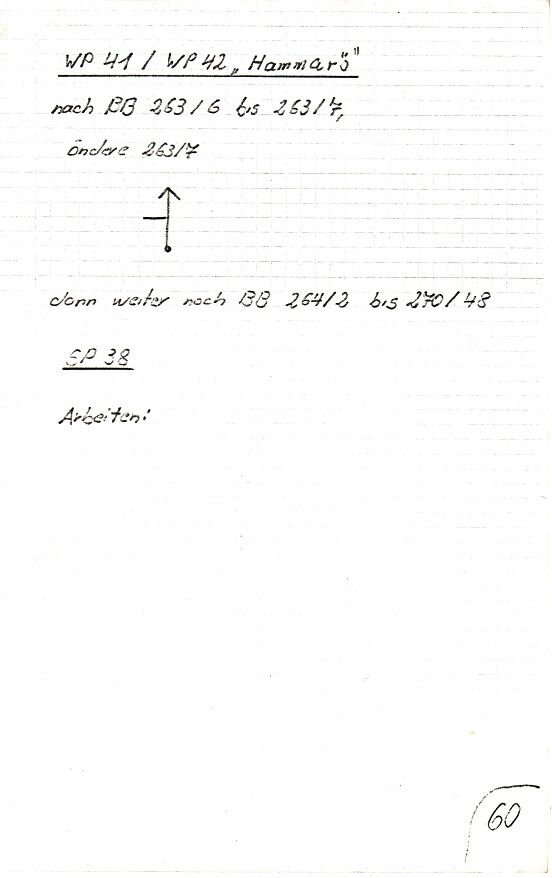 WP 41 / WP 42 „Hammarö"
nach BB 263/6 bis 263/7,
ändere 263/7
dann weiter nach BB 264/2 bis 270/48
SP 38
Arbeiten:
60